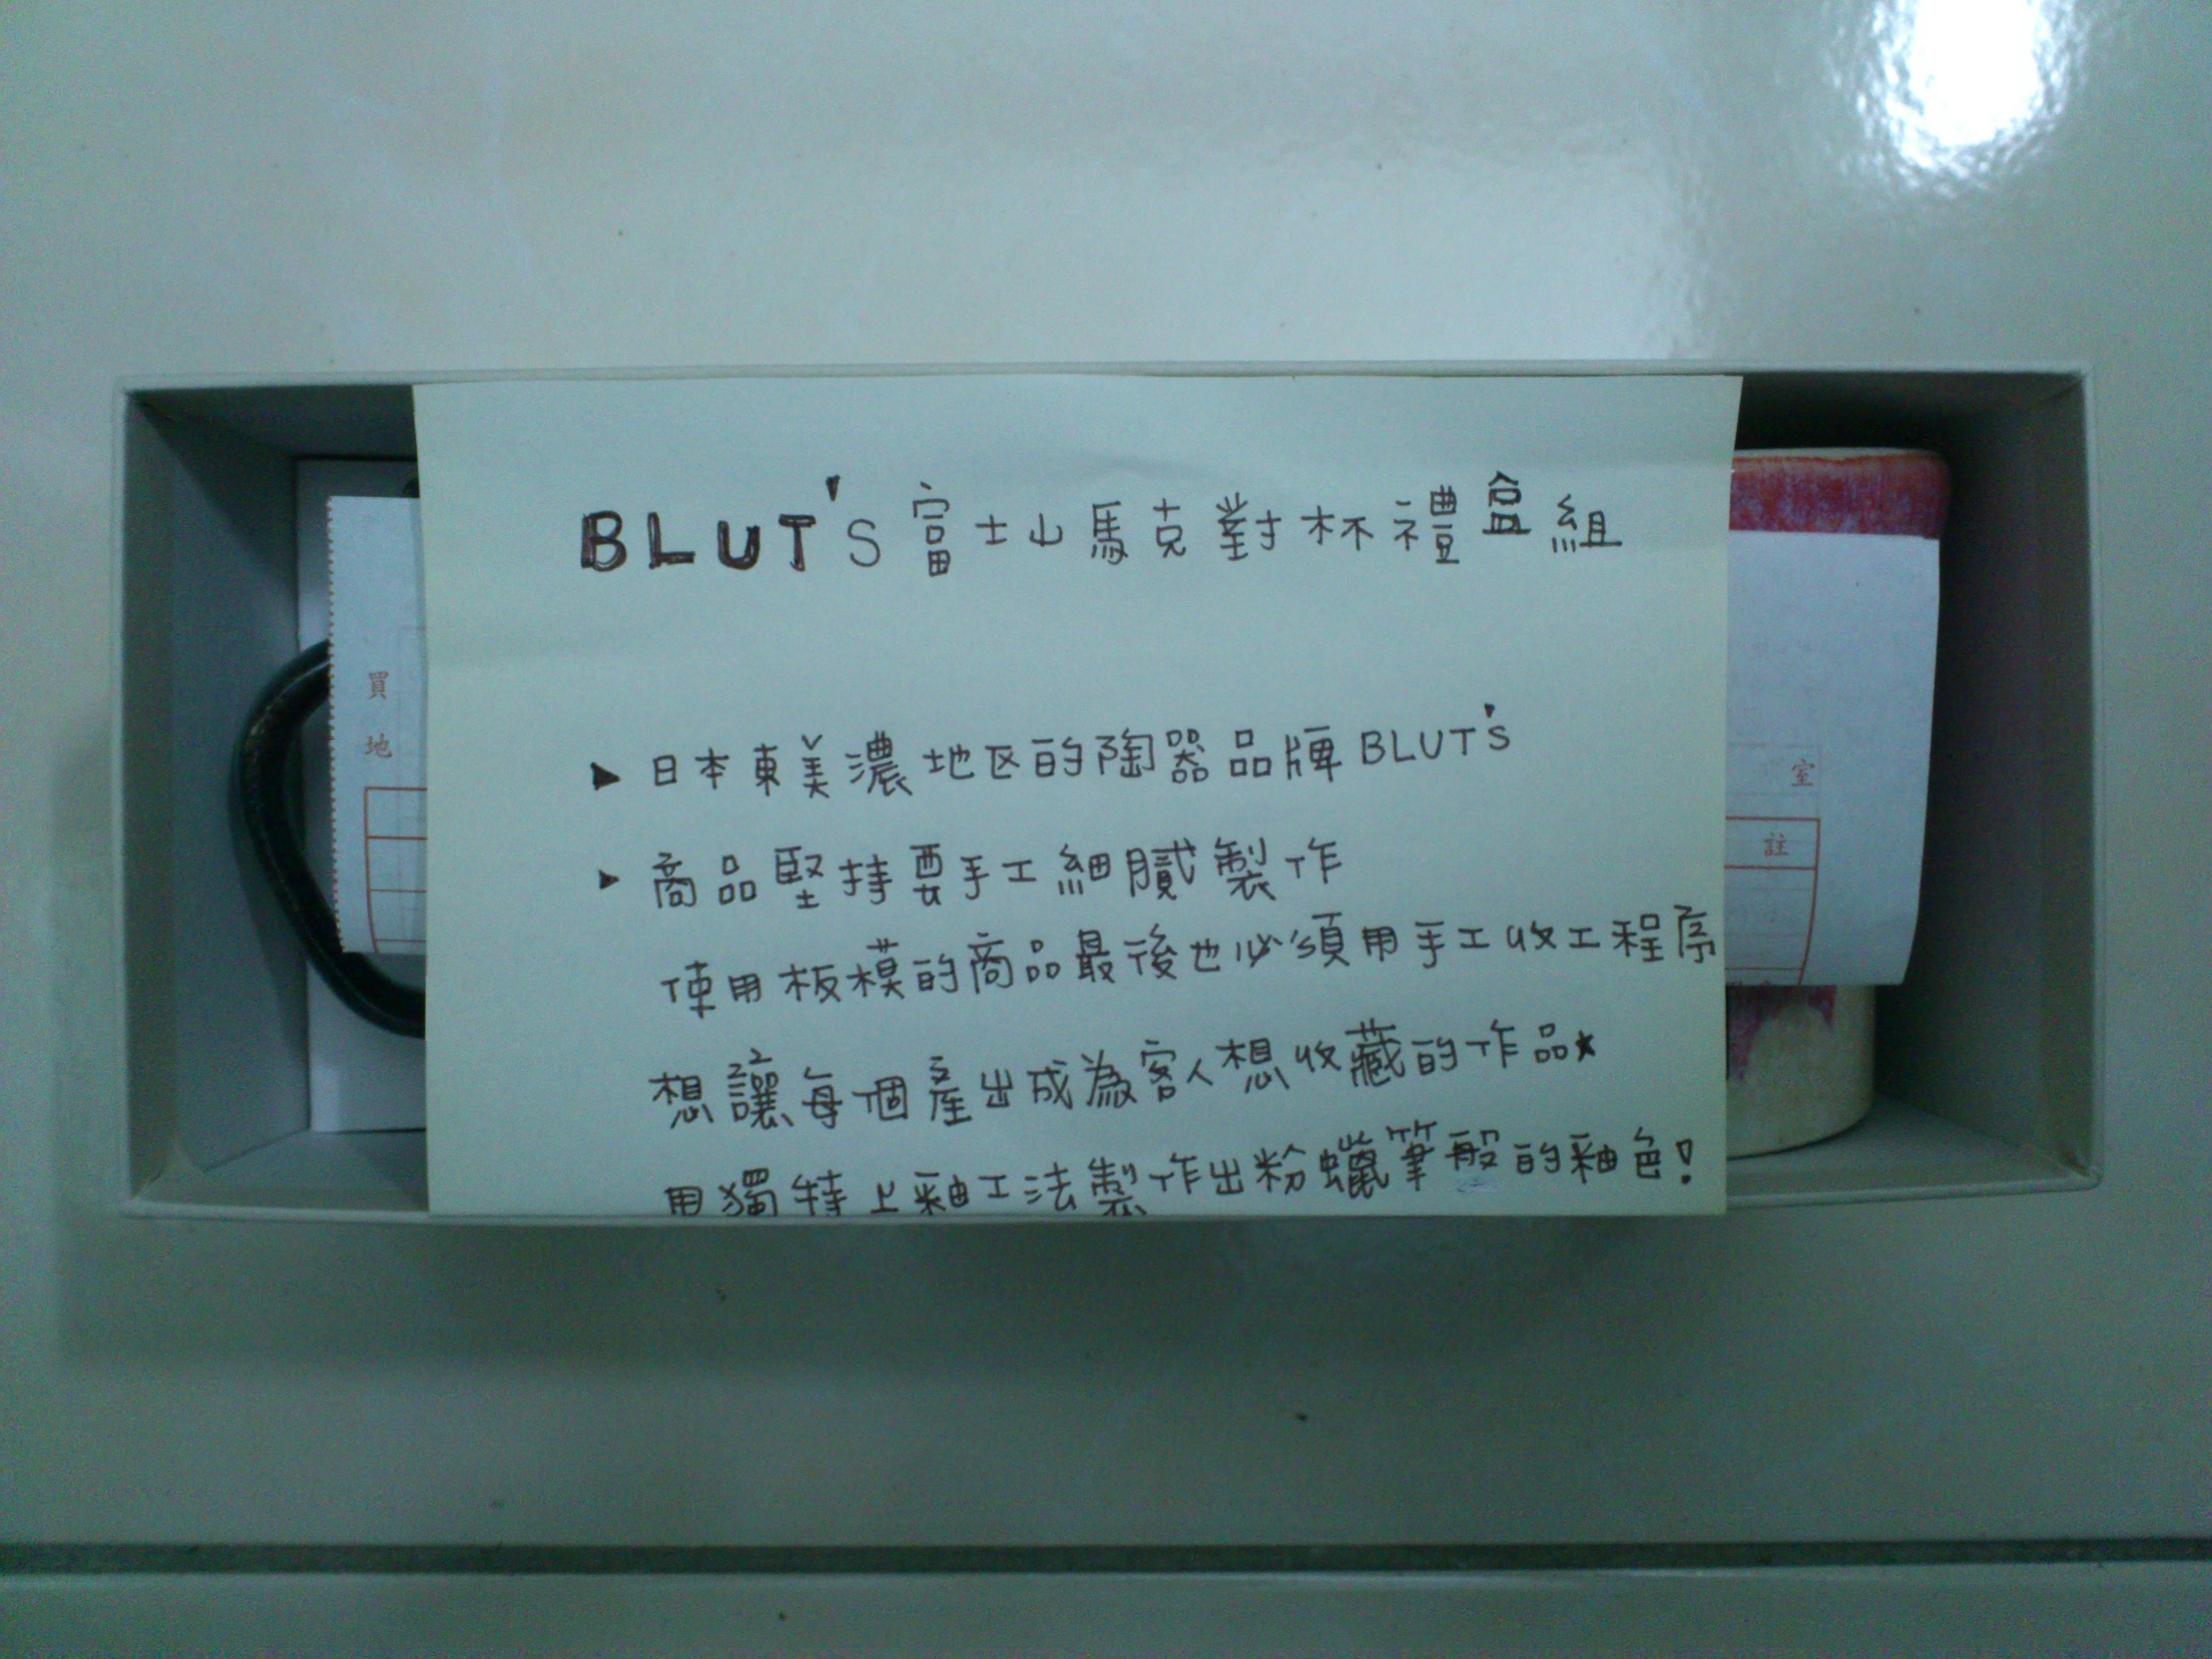 BLUT's 富士山馬克對杯禮盒組
▶ 日本東美濃地区的陶器品牌 BLUT's
▶ 商品堅持要手工細膩製作
使用板模的商品最後也必須用手工收工程序
想讓每個產出成為客人想收藏的作品★
用獨特上釉工法製作出粉蠟筆般的釉色!
買
地
室
註